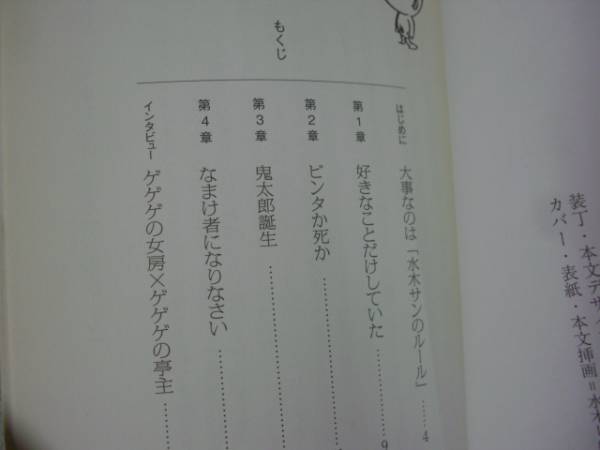 装丁・本文デザイ
カバー・表紙・本文挿画＝水木し
もくじ
はじめに 大事なのは「水木サンのルール」……4
第1章 好きなことだけしていた……9
第2章 ビンタか死か……
第3章 鬼太郎誕生……
第4章 なまけ者になりなさい……
インタビュー ゲゲゲの女房×ゲゲゲの亭主……